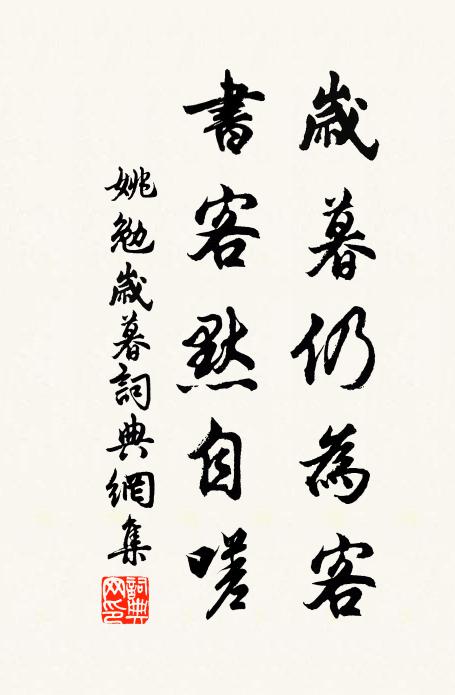 歲暮仍為客
書客默自嗟
姚勉歲暮詞典網集
詞典網印